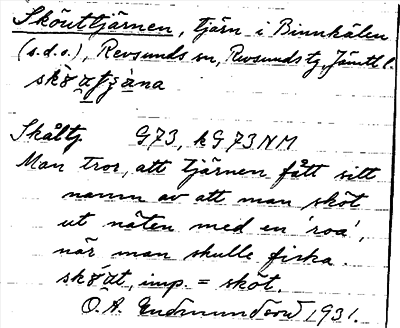 Sköuttjärnen, tjärn i Binnkälen
(s.d.o.), Revsunds sn, Revsunds tg, Jämtl l.
skö̀ʉtʃæ̀ɳa
Skåltj. G73, kG73NM
Man tror, att tjärnen fått sitt
namn av att man sköt
ut näten med en 'roa',
när man skulle fiska.
skö́ʉt, imp. = sköt.
O. A. Gudmundsson 1931.